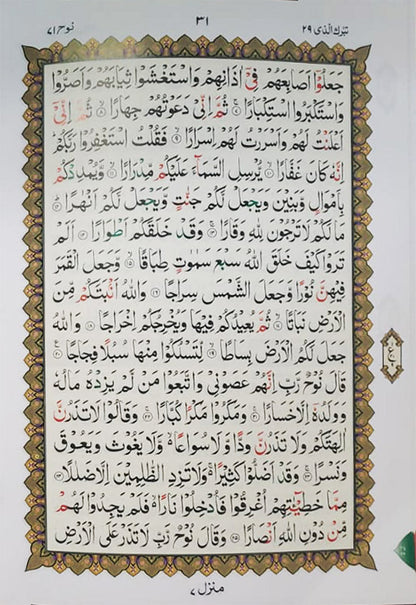 تبٰرك الذي ٢٩ ٣١ نوح ٧١
جَعَلُوْٓا اَصَابِعَهُمْ فِيْٓ اٰذَانِهِمْ وَاسْتَغْشَوْا ثِيَابَهُمْ وَاَصَرُّوْا
وَاسْتَكْبَرُوا اسْتِكْبَارًا ۝٧ ثُمَّ اِنِّيْ دَعَوْتُهُمْ جِهَارًا ۝٨ ثُمَّ اِنِّيْٓ
اَعْلَنْتُ لَهُمْ وَاَسْرَرْتُ لَهُمْ اِسْرَارًا ۝٩ فَقُلْتُ اسْتَغْفِرُوْا رَبَّكُمْ
اِنَّهٗ كَانَ غَفَّارًا ۝١٠ يُّرْسِلِ السَّمَآءَ عَلَيْكُمْ مِّدْرَارًا ۝١١ وَّيُمْدِدْكُمْ
بِاَمْوَالٍ وَّبَنِيْنَ وَيَجْعَلْ لَّكُمْ جَنّٰتٍ وَّيَجْعَلْ لَّكُمْ اَنْهٰرًا ۝١٢
مَا لَكُمْ لَا تَرْجُوْنَ لِلّٰهِ وَقَارًا ۝١٣ وَقَدْ خَلَقَكُمْ اَطْوَارًا ۝١٤ اَلَمْ
تَرَوْا كَيْفَ خَلَقَ اللّٰهُ سَبْعَ سَمٰوٰتٍ طِبَاقًا ۝١٥ وَّجَعَلَ الْقَمَرَ
فِيْهِنَّ نُوْرًا وَّجَعَلَ الشَّمْسَ سِرَاجًا ۝١٦ وَاللّٰهُ اَنْۢبَتَكُمْ مِّنَ
الْاَرْضِ نَبَاتًا ۝١٧ ثُمَّ يُعِيْدُكُمْ فِيْهَا وَيُخْرِجُكُمْ اِخْرَاجًا ۝١٨ وَاللّٰهُ
جَعَلَ لَكُمُ الْاَرْضَ بِسَاطًا ۝١٩ لِّتَسْلُكُوْا مِنْهَا سُبُلًا فِجَاجًا ۝٢٠
قَالَ نُوْحٌ رَّبِّ اِنَّهُمْ عَصَوْنِيْ وَاتَّبَعُوْا مَنْ لَّمْ يَزِدْهُ مَالُهٗ
وَوَلَدُهٗٓ اِلَّا خَسَارًا ۝٢١ وَمَكَرُوْا مَكْرًا كُبَّارًا ۝٢٢ وَقَالُوْا لَا تَذَرُنَّ
اٰلِهَتَكُمْ وَلَا تَذَرُنَّ وَدًّا وَّلَا سُوَاعًا ۙ وَّلَا يَغُوْثَ وَيَعُوْقَ
وَنَسْرًا ۝٢٣ وَقَدْ اَضَلُّوْا كَثِيْرًا ۚ وَلَا تَزِدِ الظّٰلِمِيْنَ اِلَّا ضَلٰلًا ۝٢٤
مِمَّا خَطِيْٓـٰٔتِهِمْ اُغْرِقُوْا فَاُدْخِلُوْا نَارًا ۙ فَلَمْ يَجِدُوْا لَهُمْ
مِّنْ دُوْنِ اللّٰهِ اَنْصَارًا ۝٢٥ وَقَالَ نُوْحٌ رَّبِّ لَا تَذَرْ عَلَى الْاَرْضِ
منزل ٧